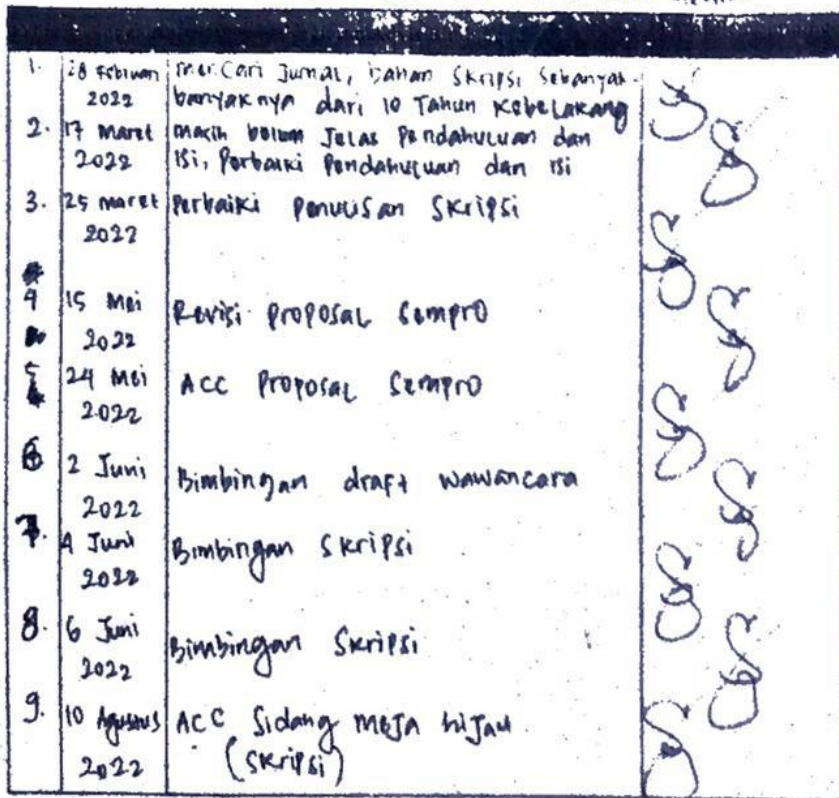 1. 28 Februari mencari Jurnal, bahan Skripsi Sebanyak-
2022 banyaknya dari 10 Tahun Kebelakang
2. 17 Maret masih belum Jelas Pendahuluan dan
2022 isi, Perbaiki Pendahuluan dan isi
3. 25 Maret Perbaiki Penulisan Skripsi
2022
4 15 Mei Revisi Proposal Sempro
2022
5 24 Mei ACC Proposal Sempro
2022
6 2 Juni Bimbingan draft wawancara
2022
7. 4 Juni Bimbingan Skripsi
2022
8. 6 Juni Bimbingan Skripsi
2022
9. 10 Agustus ACC Sidang meja hijau
2022 (Skripsi)